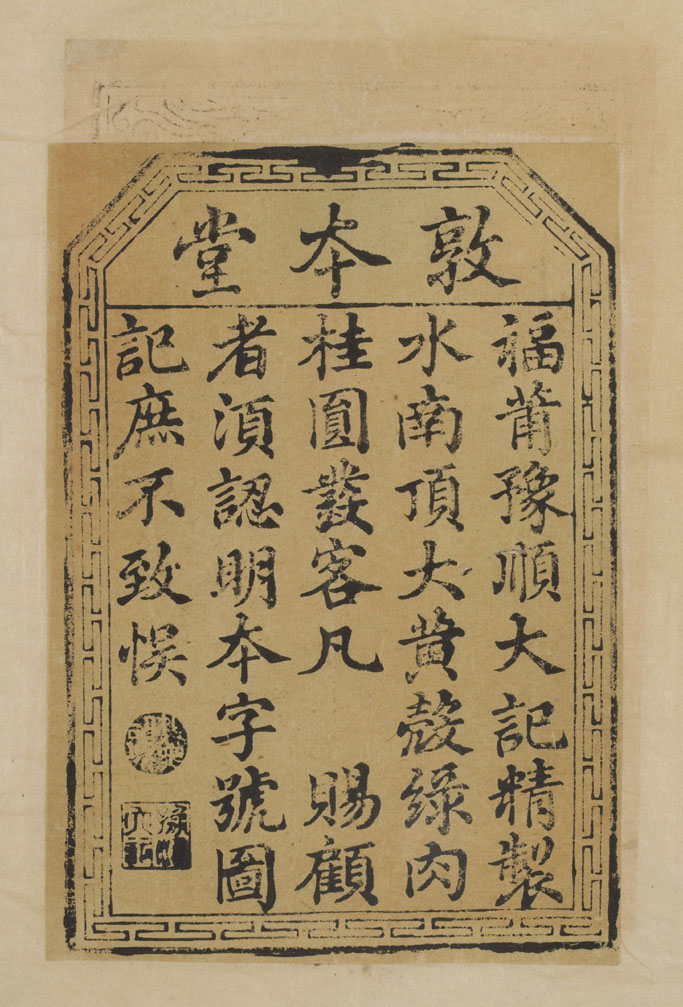 敦本堂
福莆豫順大記精製
水南頂大黄殼綠肉
桂圓發客凡 賜顧
者須認明本字號圖
記庶不致悮